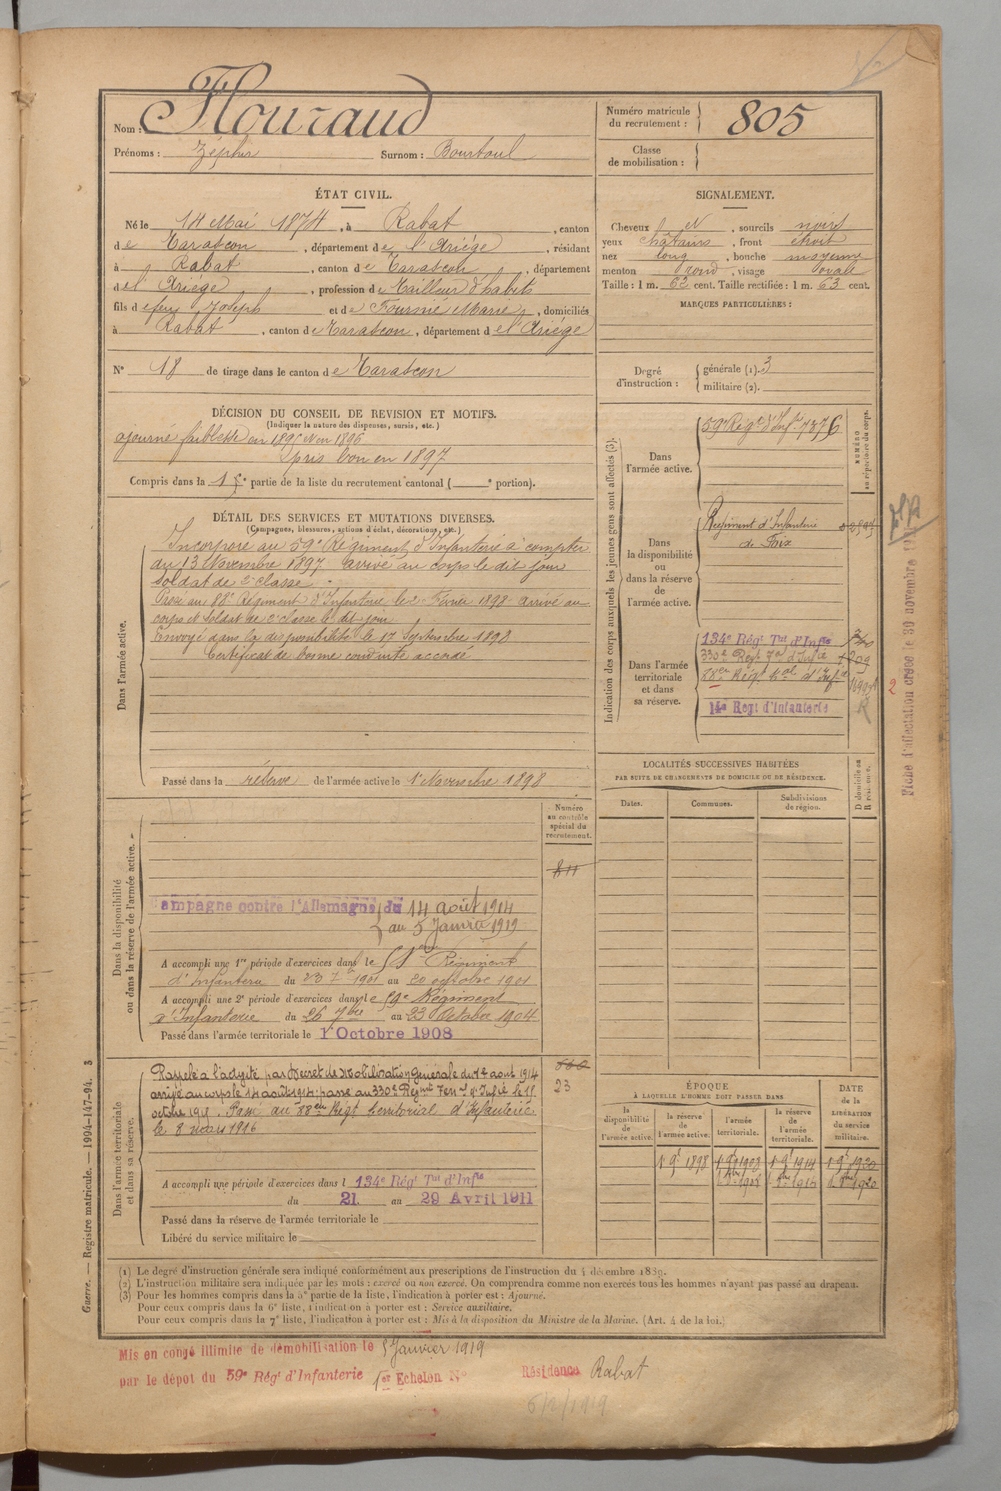 Nom : Flouraud
Prénoms : Zéphir Surnom : Bourboul
Numéro matricule du recrutement : 805
Classe de mobilisation :
ÉTAT CIVIL.
Né le 14 Mai 1874, à Rabat, canton
de Tarascon, département de l'Ariége, résidant
à Rabat, canton de Tarascon, département
del' Ariége, profession de Tailleur d'habits
fils de feu Joseph et de Fournié Marie, domiciliés
à Rabat, canton de Tarascon, département de l'Ariége
N° 18 de tirage dans le canton de Tarascon
SIGNALEMENT.
Cheveux et, sourcils noirs
yeux châtains, front étroit
nez long, bouche moyenne
menton rond, visage ovale
Taille : 1 m. 62 cent. Taille rectifiée : 1 m. 63 cent.
MARQUES PARTICULIÈRES :
Degré d'instruction :
générale (1). 3
militaire (2).
DÉCISION DU CONSEIL DE REVISION ET MOTIFS.
(Indiquer la nature des dispenses, sursis, etc.)
ajourné faiblesse en 1895 et en 1896
pris bon en 1897
Compris dans la 1e partie de la liste du recrutement cantonal ( e portion).
DÉTAIL DES SERVICES ET MUTATIONS DIVERSES.
(Campagnes, blessures, actions d'éclat, décorations, etc.)
Dans l'armée active.
Incorporé au 59e Régiment d'Infanterie à compter
du 13 Novembre 1897 arrivé au corps le dit jour
soldat de 2e classe.
Passé au 88e Régiment d'Infanterie le 2 Février 1898 arrivé au
corps et soldat de 2e classe le dit jour
Envoyé dans la disponibilité le 17 Septembre 1898
Certificat de bonne conduite accordé
Passé dans la réserve de l'armée active le 1 Novembre 1898
Indication des corps auxquels les jeunes gens sont affectés (3).
Dans l'armée active.
59e Régt d'Infie 7376
NUMÉRO au répertoire du corps.
Dans la disponibilité ou dans la réserve de l'armée active.
Régiment d'Infanterie
de Foix
Dans l'armée territoriale et dans sa réserve.
134e Régt Tal d'Infie
330e Régt Tal d'Infie 209
88e Régt tal d'Infie
14e Regt d'Infanterie
Fiche d'affectation créée le 30 novembre
2
LOCALITÉS SUCCESSIVES HABITÉES
PAR SUITE DE CHANGEMENTS DE DOMICILE OU DE RÉSIDENCE.
Dates. Communes. Subdivisions de région. D domicile ou R résidence.
Dans la disponibilité ou dans la réserve de l'armée active.
Numéro au contrôle spécial du recrutement.
811
ampagne contre l'Allemagne du 14 août 1914
au 5 Janvier 1919
A accompli une 1re période d'exercices dans le Régiment
d'Infanterie du 23 7bre 1901 au 20 octobre 1901
A accompli une 2e période d'exercices dans le 59e Régiment
d'Infanterie du 26 7bre au 23 Octobre 1904
Passé dans l'armée territoriale le 1er Octobre 1908
Dans l'armée territoriale et dans sa réserve.
Rappelé à l'activité par Décret de Mobilisation Générale du 1er août 1914
arrivé au corps le 14 août 1914; passé au 330e Régmt Terral d'Infie le 15
octobre 1915. Passé au 88ème Régt territorial d'Infanterie
le 8 mars 1916
23
A accompli une période d'exercices dans l 134e Régt Tal d'Infie
du 21 au 29 Avril 1911
Passé dans la réserve de l'armée territoriale le
Libéré du service militaire le
ÉPOQUE
À LAQUELLE L'HOMME DOIT PASSER DANS
la disponibilité de l'armée active. la réserve de l'armée active. l'armée territoriale. la réserve de l'armée territoriale.
DATE de la LIBÉRATION du service militaire.
1 9bre 1898 1 9bre 1908 1 9bre 1914 1 9bre 1920
(1) Le degré d'instruction générale sera indiqué conformément aux prescriptions de l'instruction du 4 décembre 1889.
(2) L'instruction militaire sera indiquée par les mots : exercé ou non exercé. On comprendra comme non exercés tous les hommes n'ayant pas passé au drapeau.
(3) Pour les hommes compris dans la 5e partie de la liste, l'indication à porter est : Ajourné.
Pour ceux compris dans la 6e liste, l'indication à porter est : Service auxiliaire.
Pour ceux compris dans la 7e liste, l'indication à porter est : Mis à la disposition du Ministre de la Marine. (Art. 4 de la loi.)
Guerre. — Registre matricule. — 1994-147-94. 3
Mis en congé illimité de démobilisation le 5 Janvier 1919
par le dépot du 59e Régt d'Infanterie 1er Echelon N° Résidence Rabat